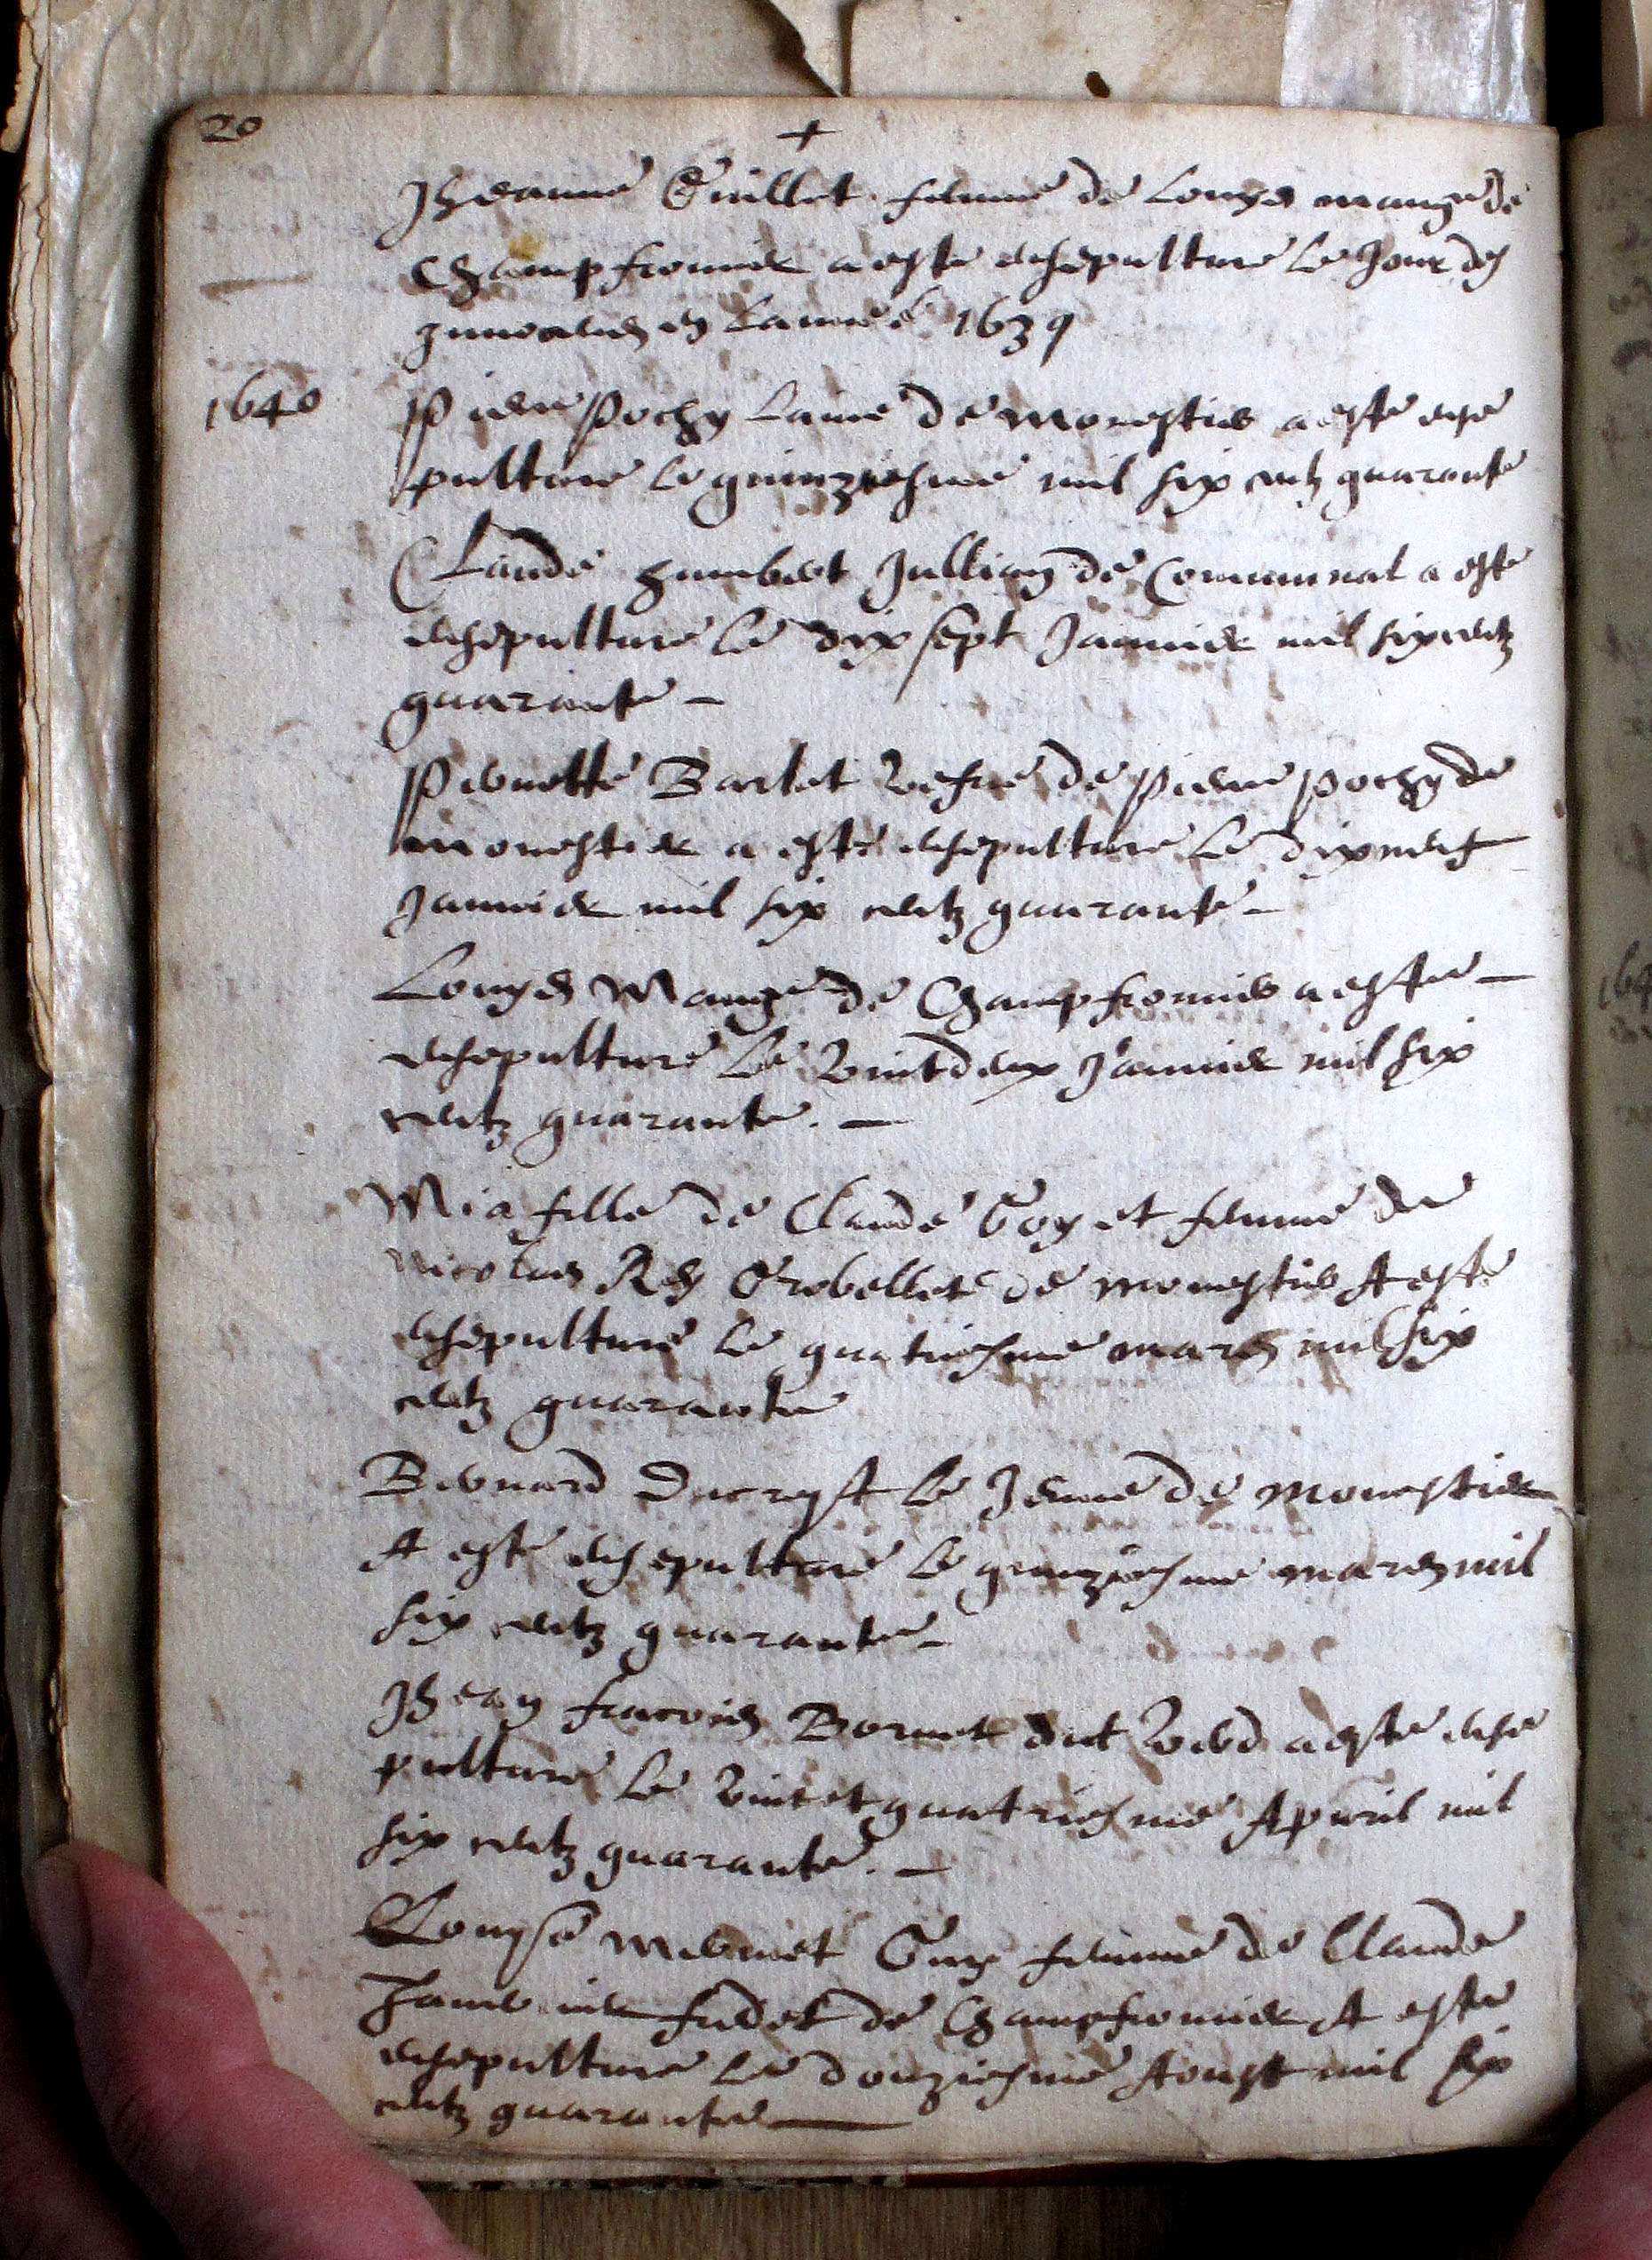 20
+
Jheanne Guillet femme de Louys mange de
Champfromier a este ensepulture le Jour des
Innocens en Lannee 1639
1640
Pierre Pochy laine de monestier a este ense
pulture le quinziesme mil six centz quarante
Claude humbert Jullian de Communal a este
ensepulture le dix sept Januier mil six centz
quarante -
Pernette Barlet vefue de pierre pochy de
monestier a este ensepulture le dixneuf
Januier mil six centz quarante -
Louys Mange de Champfromier a este -
ensepulture le vint deux Januier mil six
centz quarante . -
Mia fille de Claude Goyet femme de
nicolas Rey Grobellet de monestier A este
ensepulture le quatriesme mars mil six
centz quarante
Bernard Ducrest le Jeune de monestier
A este ensepulture le quinziesme mars mil
six centz quarante -
Jhean francois Bornet dit verd a este ense
pulture le vint et quatriesme Apuril mil
six centz quarante . -
Louyse mermet Guy femme de Claude
Tauernier fudet de Champfromier A este
ensepulture le douziesme Aoust mil six
centz quarante